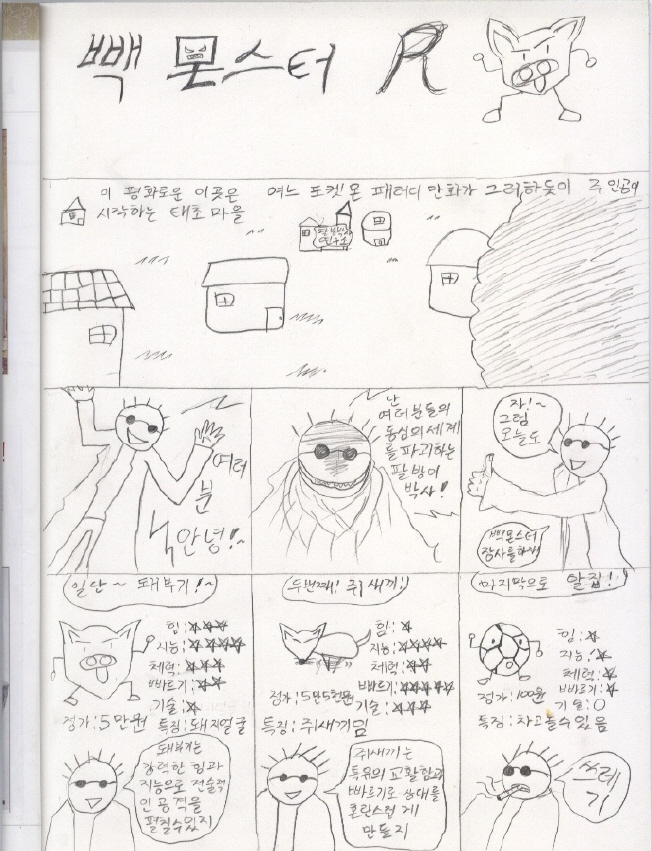 빽 몬스터 R
이 평화로운 이곳은 여느 포켓몬 패러디 만화가 그러하듯이 주인공이
시작하는 태초 마을
팔박사
연구소
여러
분
안녕!~
난
여러분들의
동심의 세계
를 파괴하는
팔방이
박사!
자!~
그럼
오늘도
빽몬스터
장사를 하재
일단~ 돼부기!~
힘: ★★★
지능: ★★★★
체력: ★★★
빠르기: ★★
기술: ★
정가: 5만원 특징: 돼지얼굴
돼부기는
강력한 힘과
지능으로 전술적
인 공격을
펼칠수있지
두번째! 쥐새끼!
힘: ★
지능: ★★★★
체력: ★★
빠르기: ★★★★★
정가: 5만5천원 기술: ★★★
특징: 쥐새끼임
쥐새끼는
특유의 교활함과
빠르기로 상대를
혼란스럽게
만들지
마지막으로 알집!
힘: ★
지능: ★
체력: ★
정가: 100원 빠르기: ★
기술: 0
특징: 차고 놀수 있음
쓰레
기